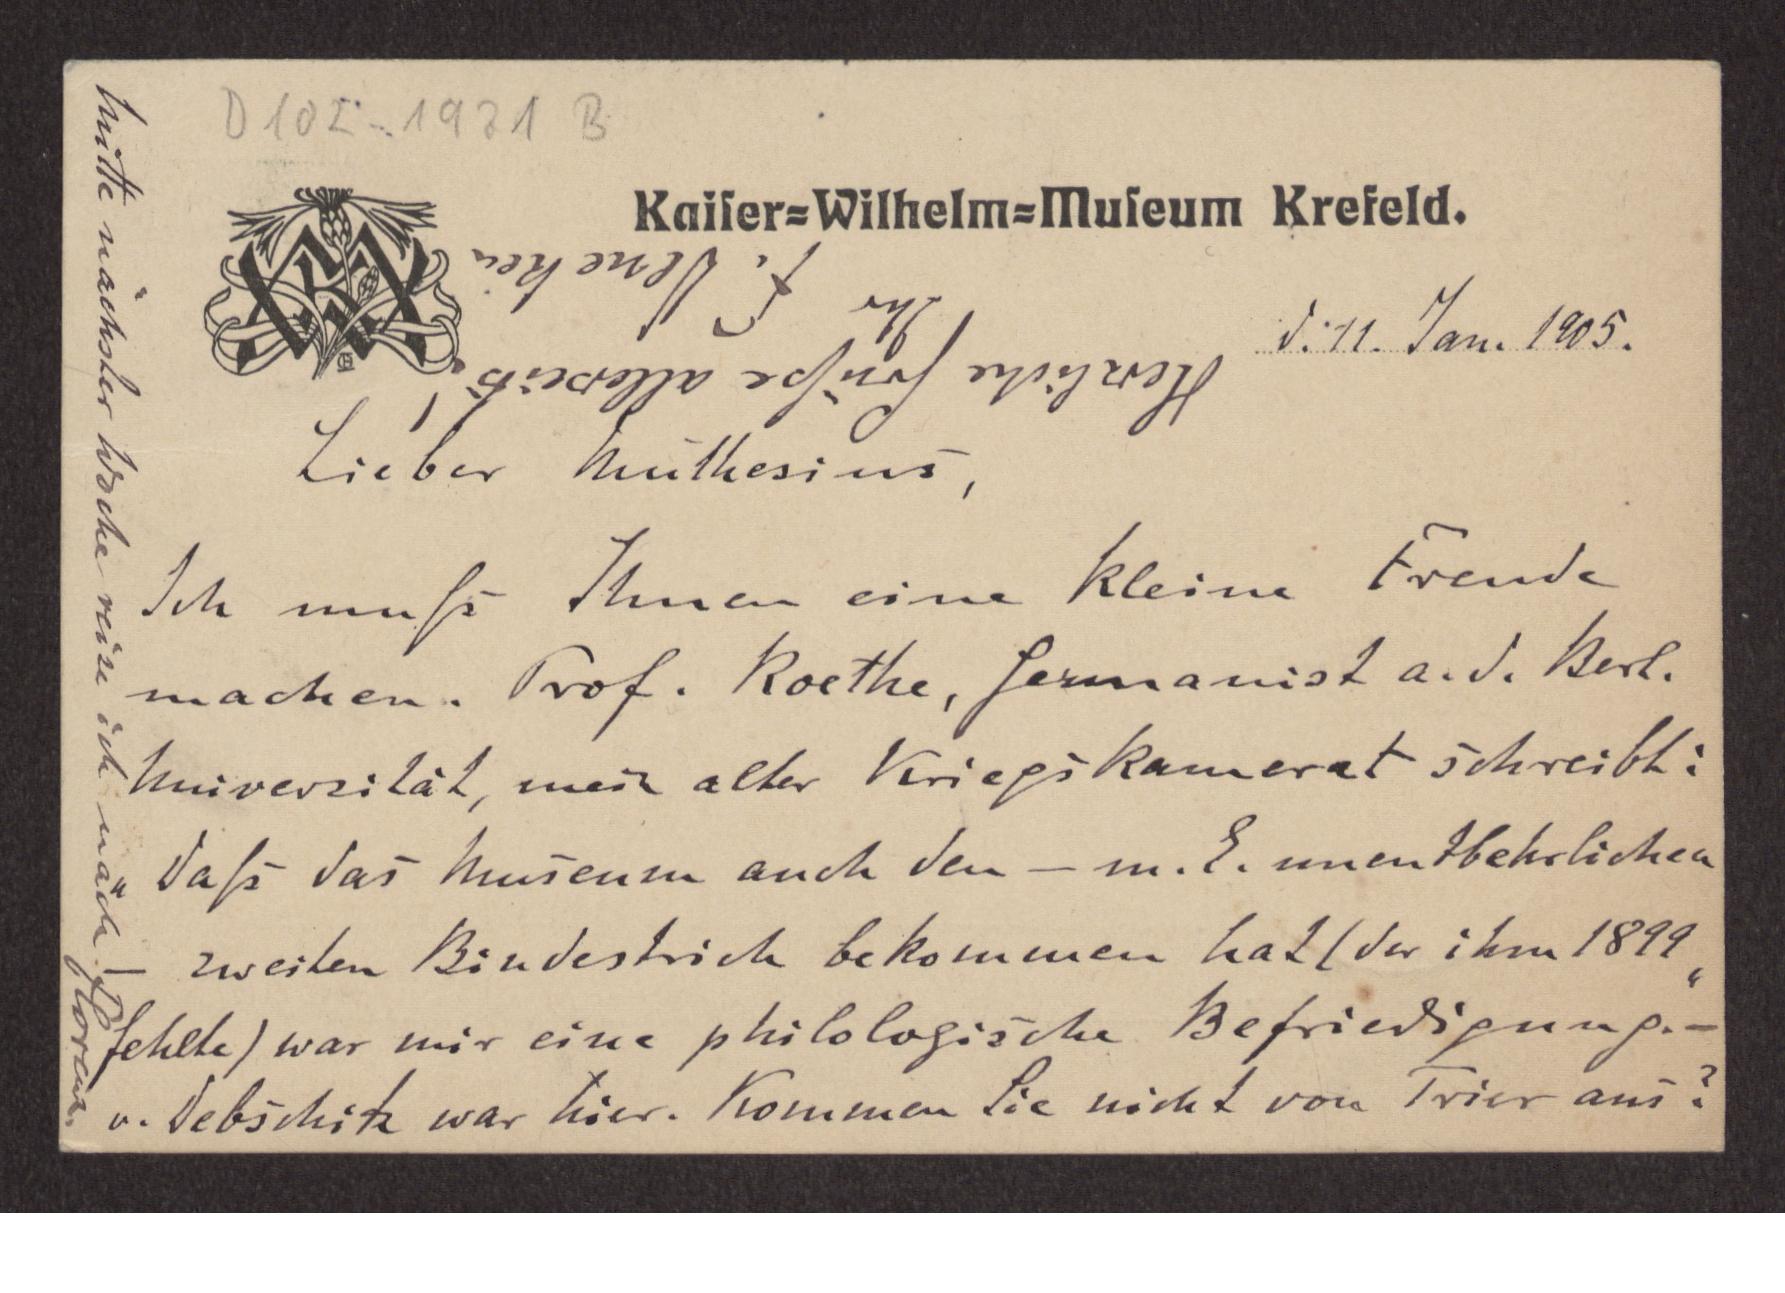 D 102-1931 B
Kaiser=Wilhelm=Museum Krefeld.
d. 11. Jan. 1905.
Lieber Muthesius,
Ich muß Ihnen eine kleine Freude
machen. Prof. Roethe, Germanist a. d. Berl.
Universität, mein alter Kriegskamerat schreibt:
„daß das Museum auch den – m. E. unentbehrlichen
– zweiten Bindestrich bekommen hat (der ihm 1899
fehlte) war mir eine philologische Befriedigung.“ –
v. Debschitz war hier. Kommen Sie nicht von Trier aus?
Mitte nächster Woche reise ich nach
Florenz.
Herzliche Grüße allerseits!
Ihr
F. Deneken